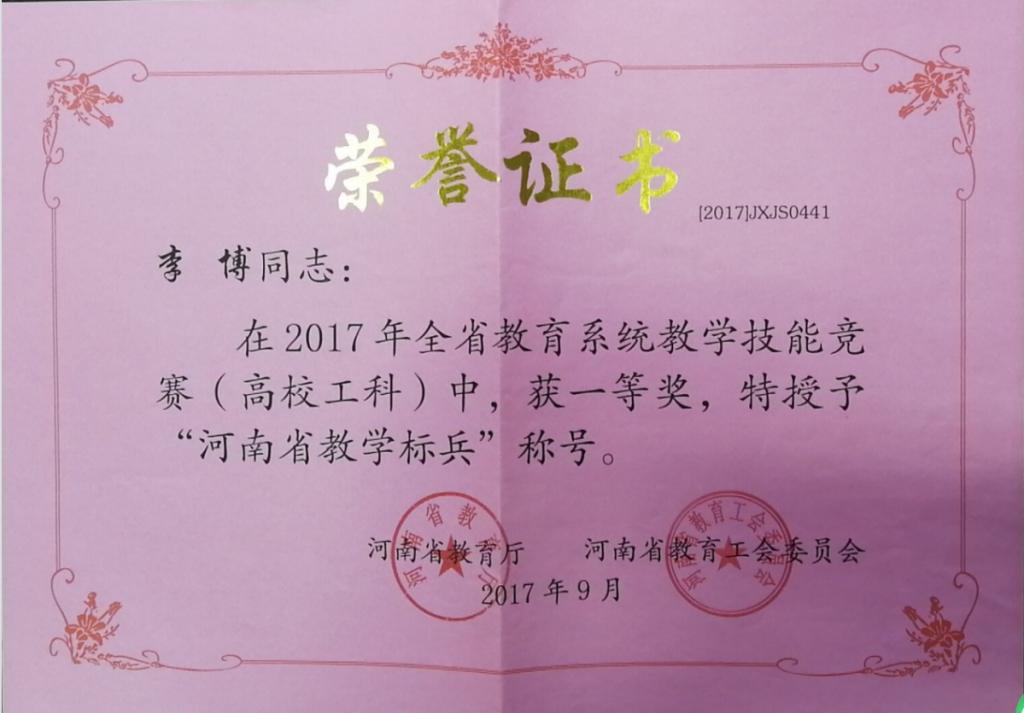 荣誉证书
[2017]JXJS0441
李 博同志：
在2017年全省教育系统教学技能竞
赛（高校工科）中，获一等奖，特授予
“河南省教学标兵”称号。
河南省教育厅 河南省教育工会委员会
2017年9月
河南省教育厅
河南省教育工会委员会